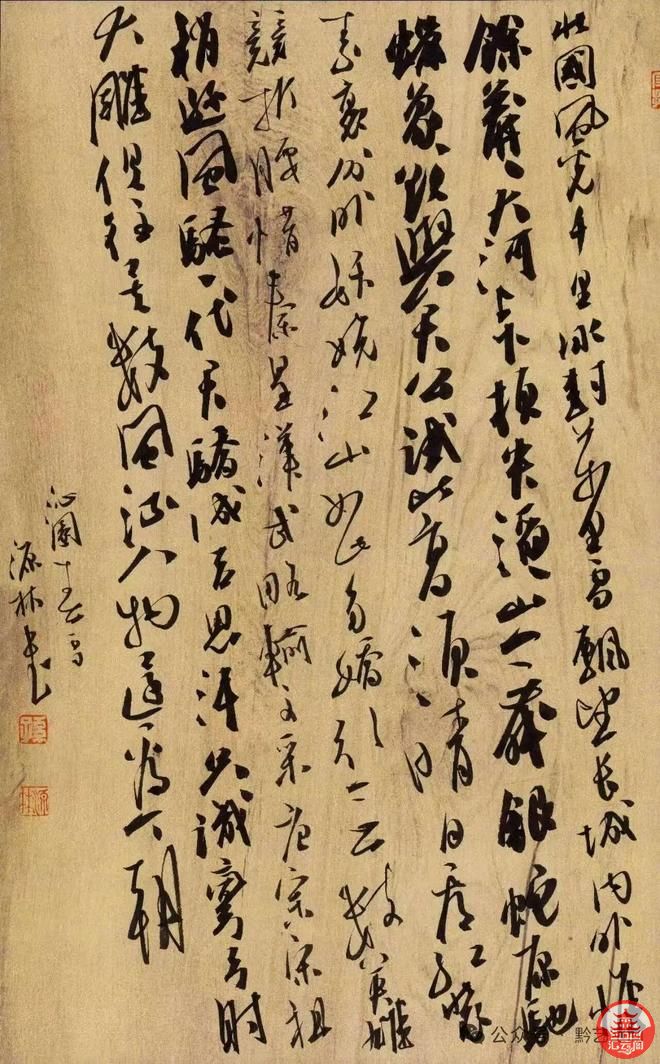 北國風光千里冰封萬里雪飄望長城内外惟
餘莽莽大河上下頓失滔滔山舞銀蛇原馳
蠟象欲與天公試比高須晴日看紅裝
素裹分外妖嬈江山如此多嬌引無數英雄
競折腰惜秦皇漢武略輸文采唐宗宋祖
稍遜風騷一代天驕成吉思汗只識彎弓射
大雕俱往矣數風流人物還看今朝
沁園春雪
源林書
公众 黔艺
汇云阁